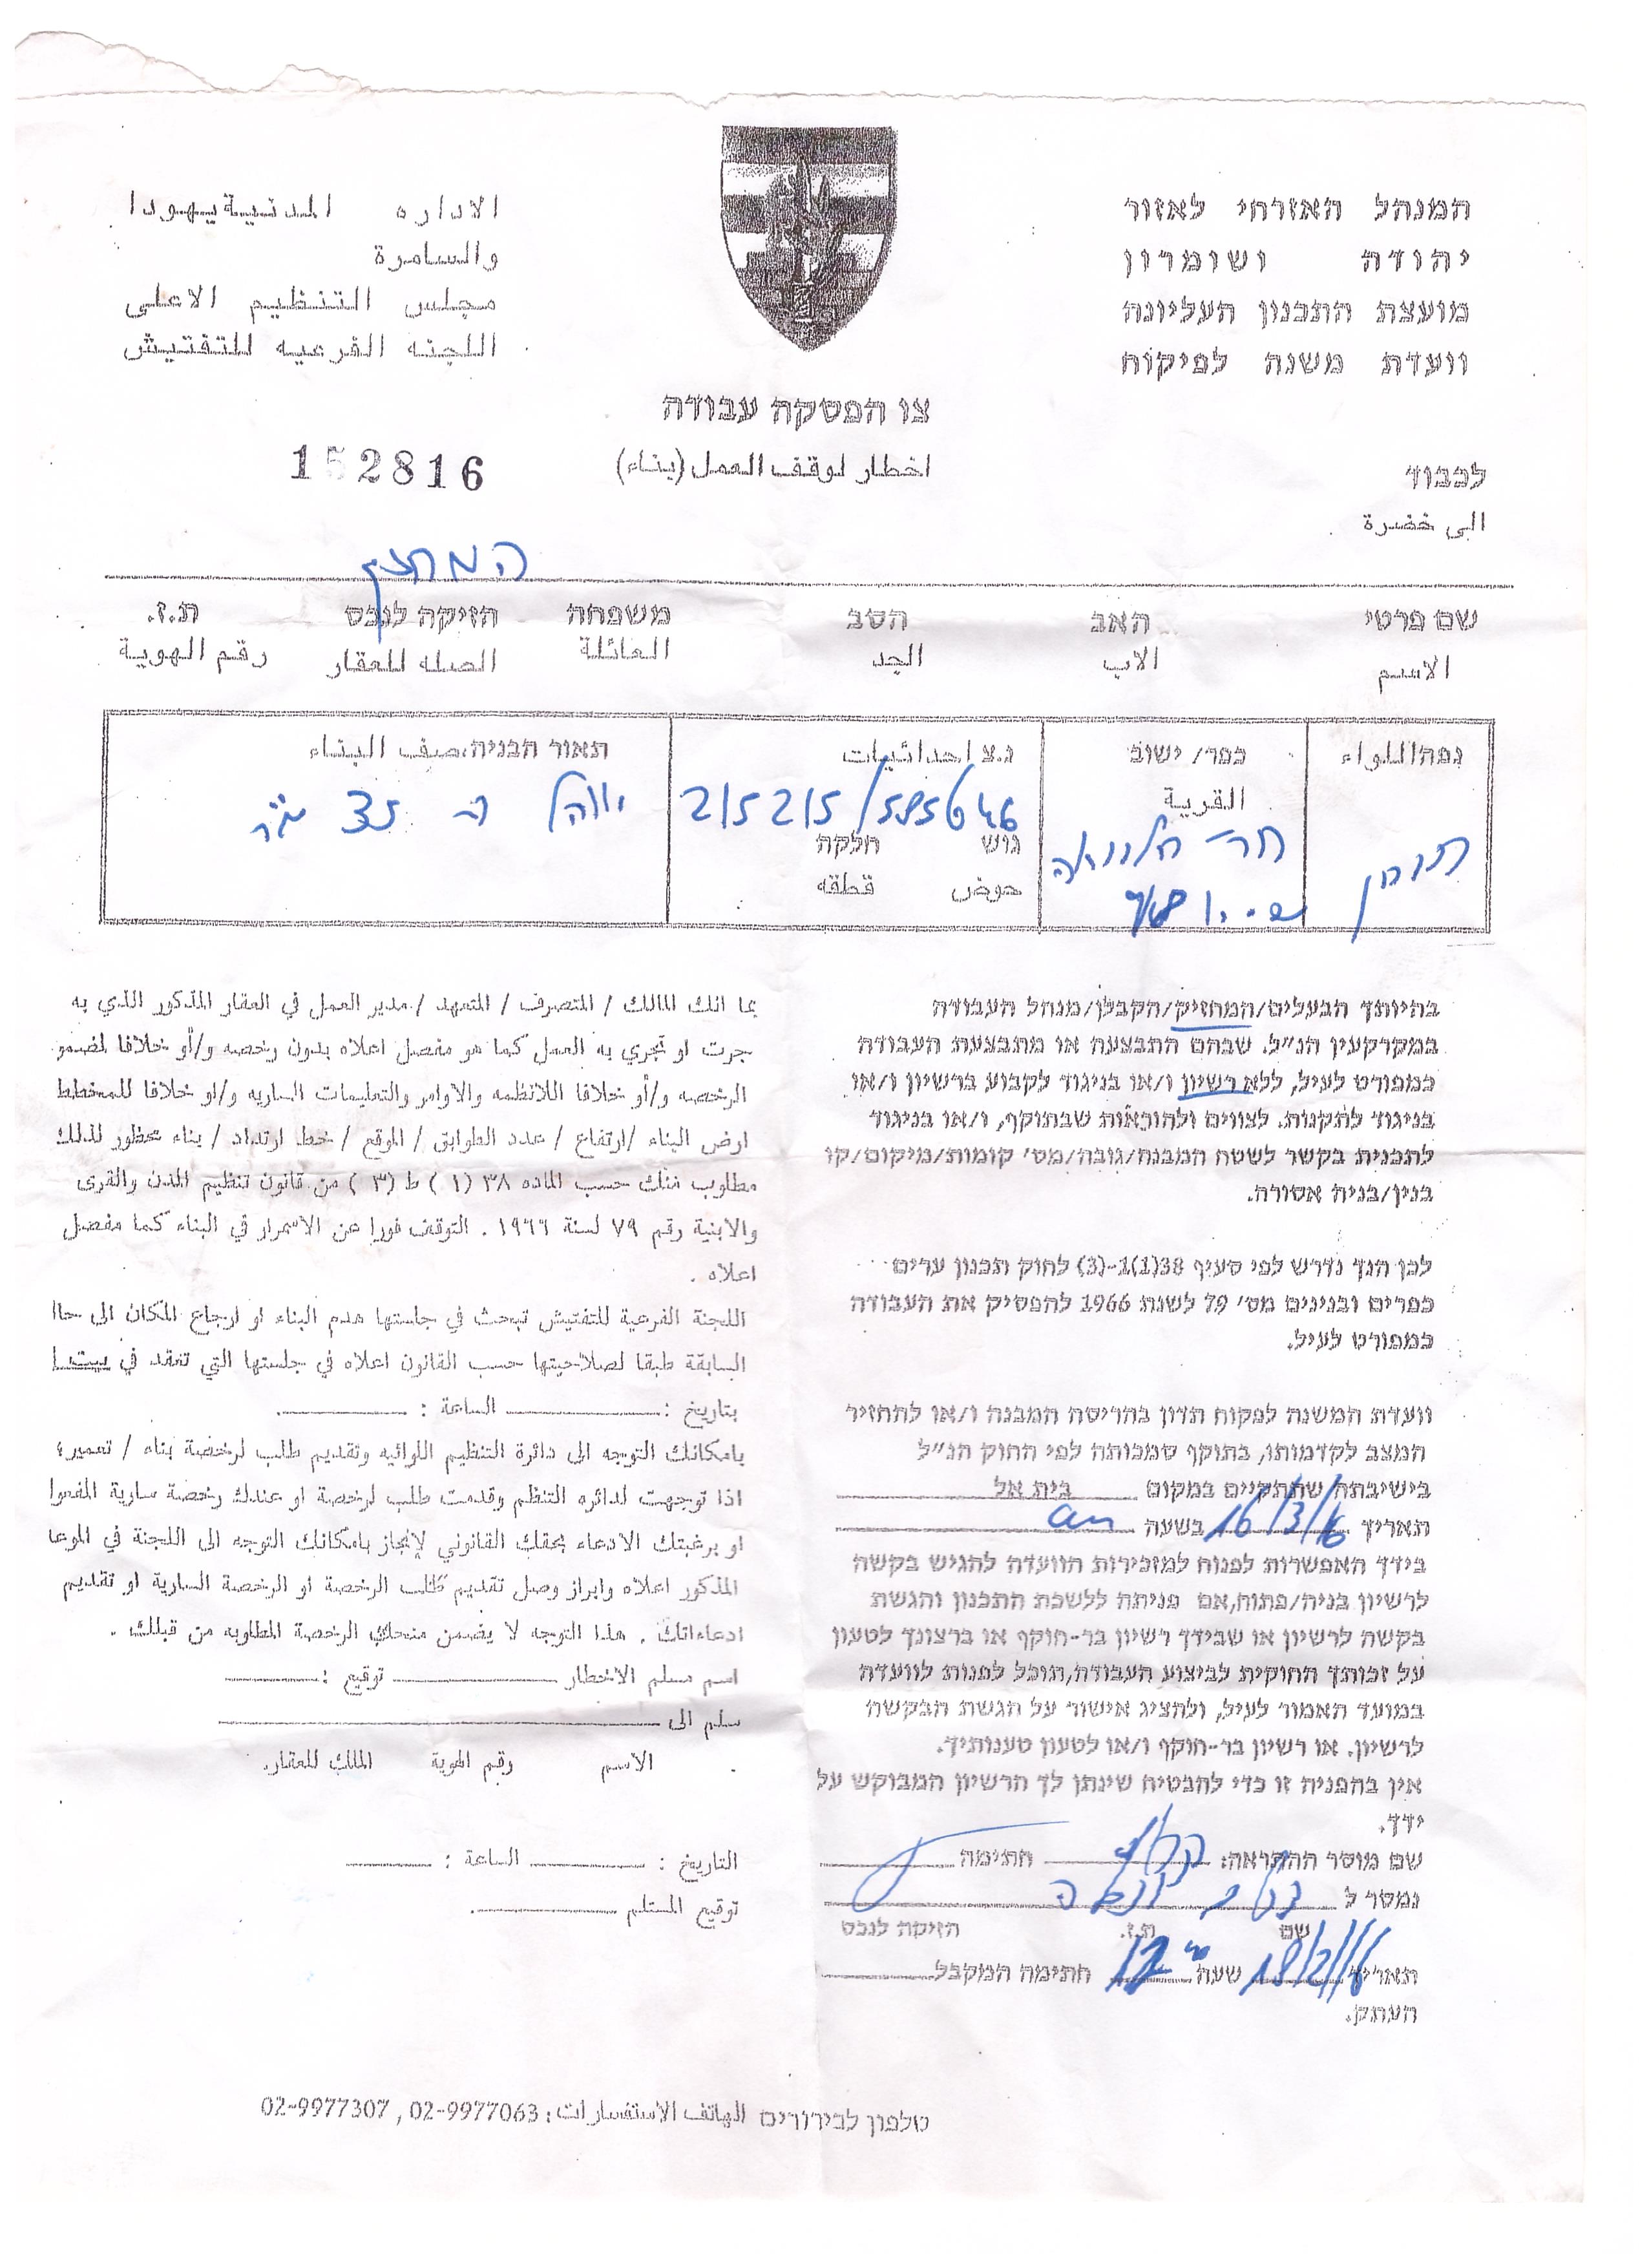 המנהל האזרחי לאזור
יהודה ושומרון
מועצת התכנון העליונה
וועדת משנה לפיקוח
الاداره المدنية يهودا
والسامرة
مجلس التنظيم الاعلى
اللجنه الفرعيه للتفتيش
צו הפסקה עבודה
اخطار لوقف العمل (بناء)
152816
לכבוד
الى حضرة
המחזיק
שם פרטי האב הסב משפחה הזיקה לנכס ת.ז.
الاسم الاب الجد العائلة الصله للعقار رقم الهوية
נפה اللواء
כפר/ ישוב
القرية
נ.צ احداثيات
215215/585646
גוש חלקה
حوض قطقه
תאור הבניה، صيف البناء
בהיותך הבעלים/המחזיק/הקבלן/מנהל העבודה
במקרקעין הנ"ל. שבהם התבצעה או מתבצעת העבודה
כמפורט לעיל, ללא רשיון ו/או בניגוד לקבוע ברשיון ו/או
בניגוד לתקנות. לצווים ולהוראות שבתוקף, ו/או בניגוד
לתכנית בקשר לשטח המבנה/גובה/מס' קומות/מיקום/קו
בנין/בניה אסורה.
לכן הנך נדרש לפי סעיף 38(1)1-(3) לחוק תכנון ערים
כפרים ובנינים מס' 79 לשנת 1966 להפסיק את העבודה
כמפורט לעיל.
וועדת המשנה לפקוח תדון בהריסה המבנה ו/או להחזיר
המצב לקדמותו, בתוקף סמכותה לפי החוק הנ"ל
בישיבתה שתתקיים במקום בית אל
תאריך 16/3/16 בשעה
בידך האפשרות לפנות למזכירות הוועדה להגיש בקשה
לרשיון בניה/פתוח,אם פניתה ללשכת התכנון והגשת
בקשה לרשיון או שבידך רשיון בר-חוקף או ברצונך לטעון
על זכותך החוקית לביצוע העבודה,תוכל לפנות לוועדה
במועד האמור לעיל, ולהציג אישור על הגשת הבקשה
לרשיון. או רשיון בר-חוקף ו/או לטעון טענותיך.
אין בהפניה זו כדי להבטיח שינתן לך הרשיון המבוקש על
ידך.
שם מוסר ההתראה: חתימה
נמסר ל
שם ת.ז. הזיקה לנכס
תאריך 18/2/16 שעה 12 חתימה המקבל
העתק.
بما انك المالك / المتصرف / المتعهد / مدير العمل في العقار المذكور الذي به
جرت او تجري به العمل كما هو مفصل اعلاه بدون رخصه و/أو خلافا لمضمو
الرخصه و/أو خلافا اللانظمه والاوامر والتعليمات الساريه و/او خلافا للمخطط
ارض البناء /ارتفاع / عدد الطوابق / الموقع / خط ارتداد / بناء محظور لذلك
مطلوب منك حسب الماده ٣٨ (١ ) ط (٣ ) من قانون تنظيم المدن والقرى
والابنية رقم ٧٩ لسنة ١٩٦٦ . التوقف فورا عن الاسمرار في البناء كما مفصل
اعلاه .
اللجنة الفرعية للتفتيش تبحث في جلستها هدم البناء او ارجاع المكان الى حاا
السابقة طبقا لصلاحيتها حسب القانون اعلاه في جلستها التي تعقد في بيت ا
بتاريخ : الساعة : .
بامكانك التوجه الى دائرة التنظيم اللوائيه وتقديم طلب لرخصة بناء / تعمير؛
اذا توجهت لدائره التنظم وقدمت طلب لرخصة او عندك رخصة سارية المفعوا
او برغبتك الادعاء بحقك القانوني لإنجاز بامكانك التوجه الى اللجنة في الموعا
المذكور اعلاه وابراز وصل تقديم طلب الرخصة او الرخصة السارية او تقديم
ادعاءاتك . هذا التوجه لا يضمن منحك الرخصة المطلوبه من قبلك .
اسم مسلم الاخطار توقيع :
سلم الى
الاسم رقم الهوية المالك للعقار.
التاريخ : الساعة :
توقيع المستلم .
טלפון לבירורים الهاتف الاستفسارات: 02-9977063 , 02-9977307